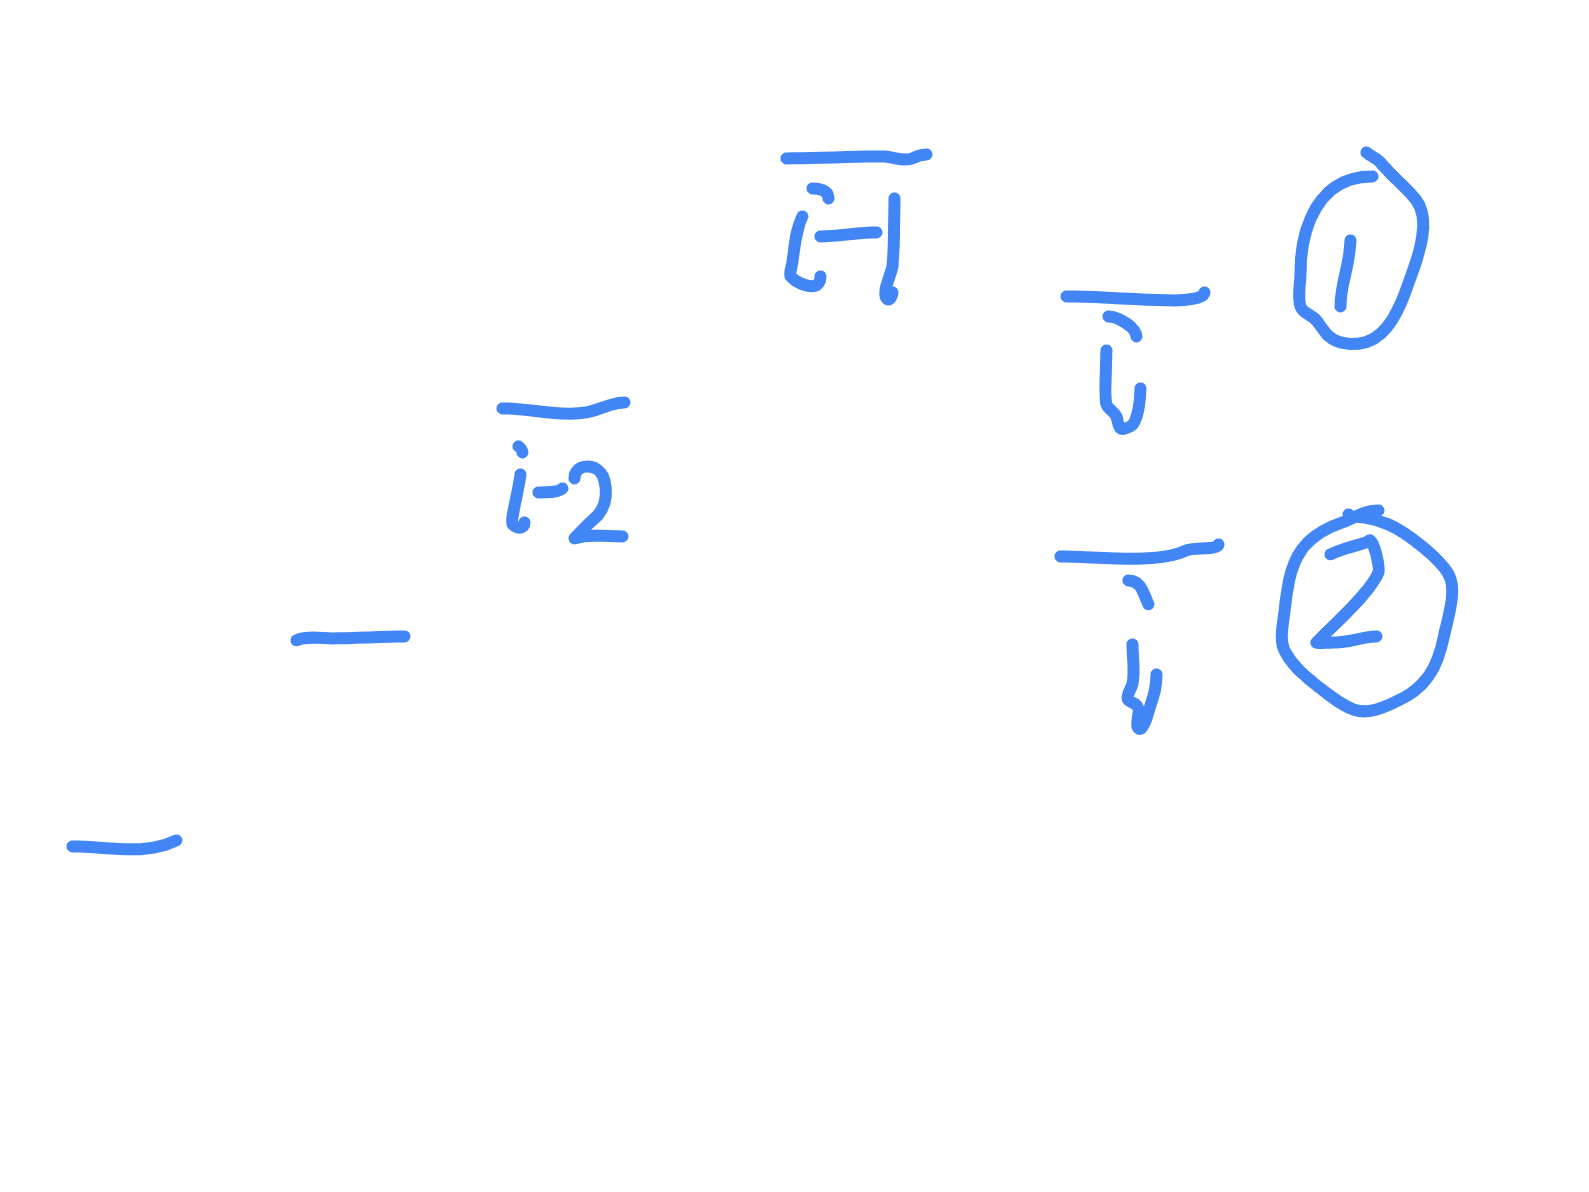 i-1
i
1
i-2
i
2